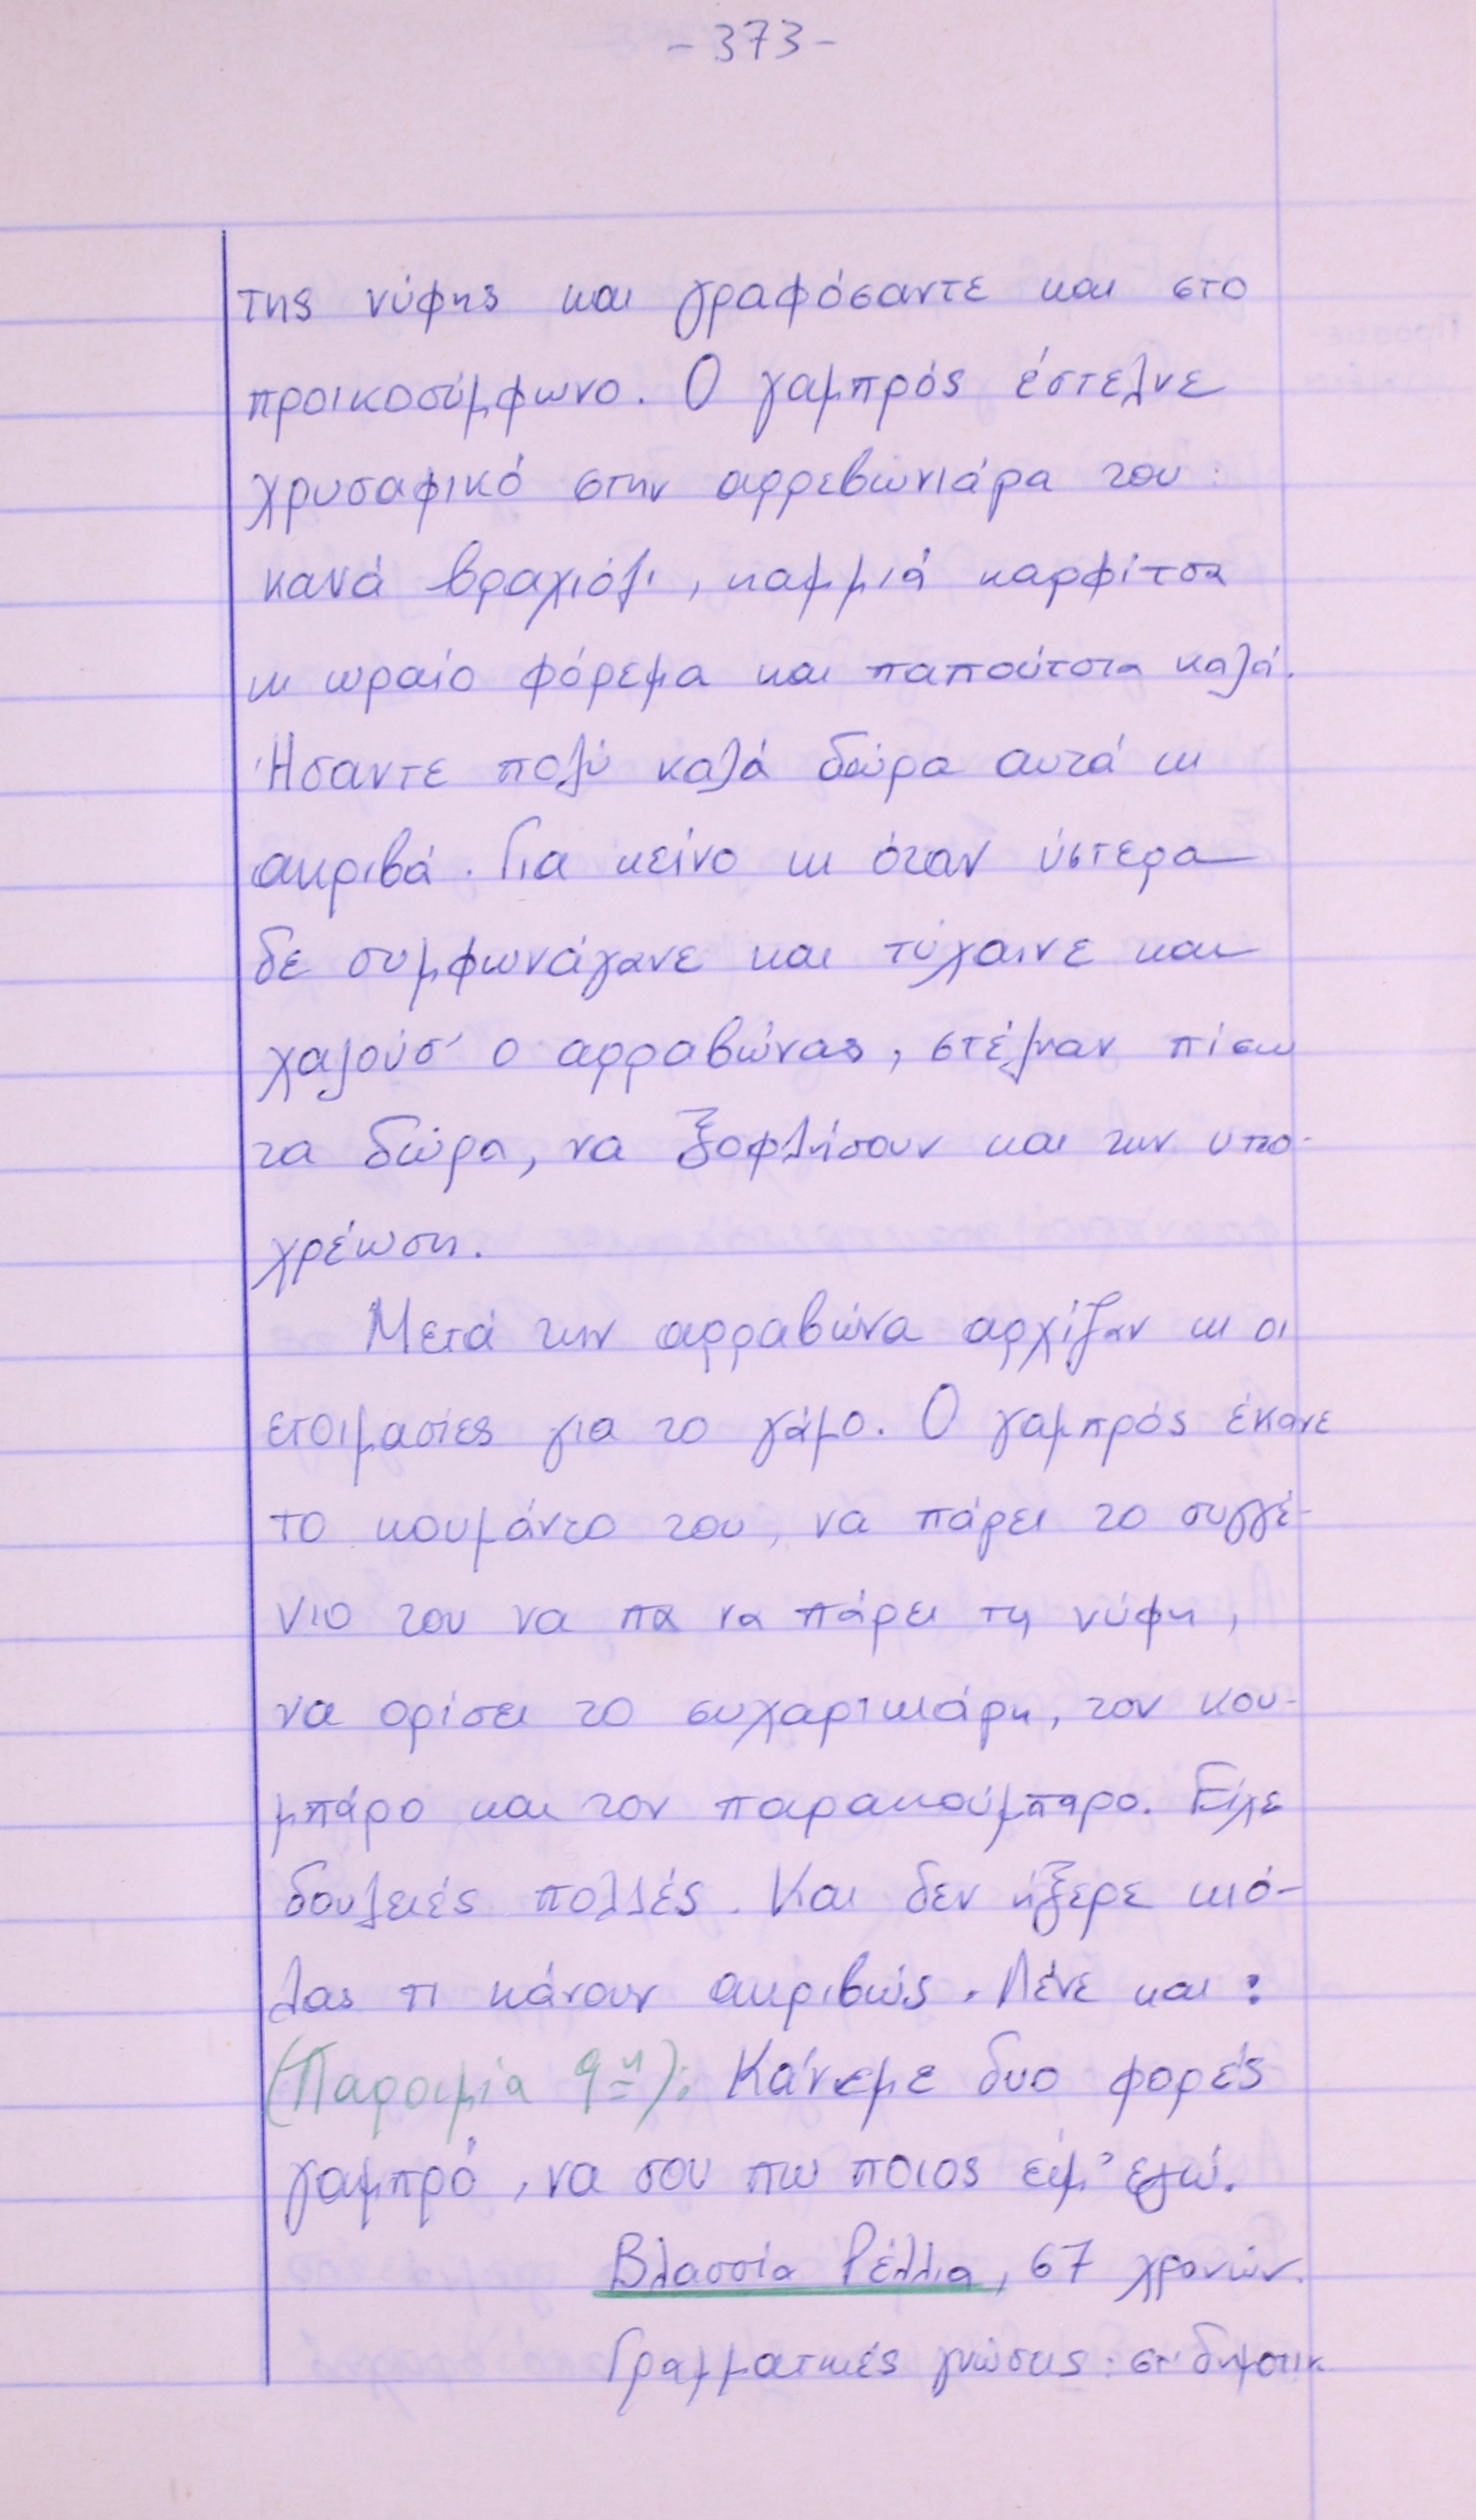 - 373 -
της νύφης και γραφόσαντε και στο
προικοσύμφωνο. Ο γαμπρός έστελνε
χρυσαφικό στην αρρεβωνιάρα του:
κανά βραχιόλι, καμμιά καρφίτσα
κι ωραίο φόρεμα και παπούτσια καλά.
Ήσαντε πολύ καλά δώρα αυτά κι
ακριβά. Για κείνο κι όταν ύστερα
δε συμφωνάγανε και τύχαινε και
χαλούσ' ο αρραβώνας, στέλναν πίσω
τα δώρα, να ξοφλήσουν και την υπο-
χρέωση.
Μετά την αρραβώνα αρχίζαν κι οι
ετοιμασίες για το γάμο. Ο γαμπρός έκανε
το κουμάντο του, να πάρει το συγγέ-
νιο του να πα να πάρει τη νύφη,
να ορίσει το συχαρικιάρη, τον κου-
μπάρο και τον παρακούμπαρο. Είχε
δουλειές πολλές. Και δεν ήξερε κιό-
λας τι κάνουν ακριβώς. Λένε και:
(Παροιμία 9η): Κάνεμε δυο φορές
γαμπρό, να σου πω ποιος είμ' εγώ.
Βλασσία Ρέλλια, 67 χρονών.
Γραμματικές γνώσεις: στ' δημοτικ.